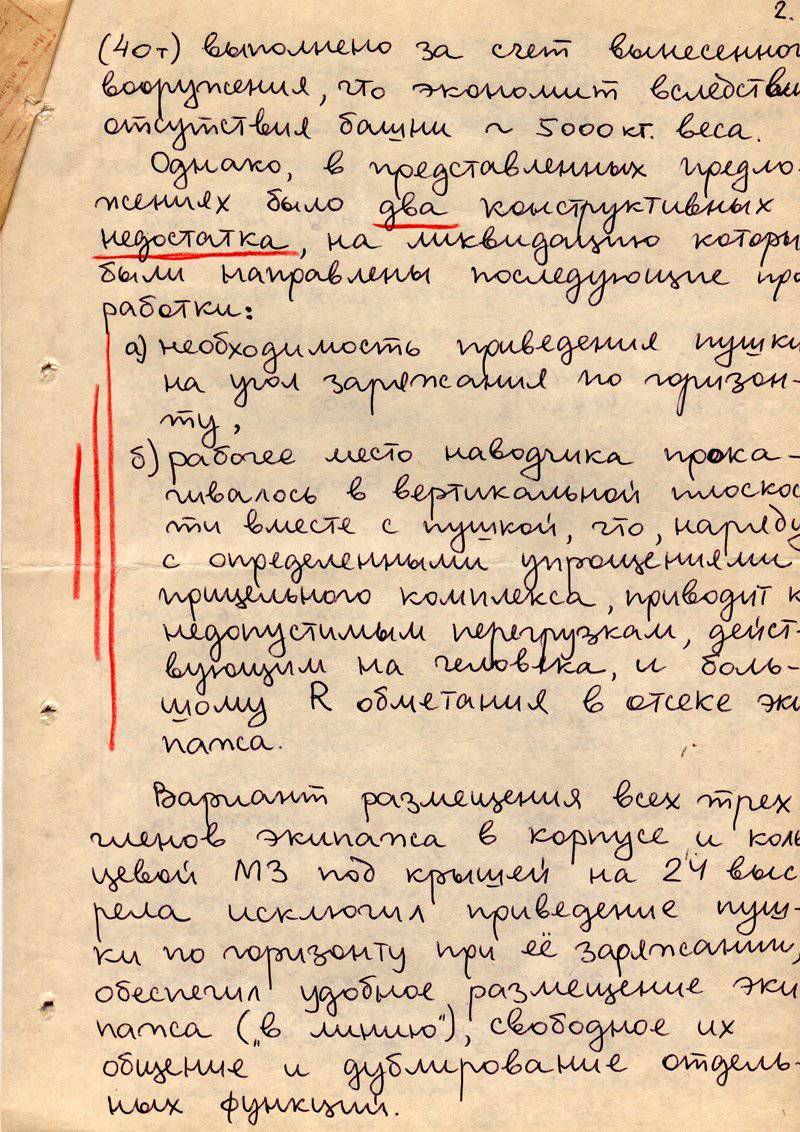 2.
(40т) выполнено за счет вынесенног
вооружения, что экономит вследстви
отсутствия башни ~ 5000 кг. веса.
Однако, в представленных предло-
жениях было два конструктивных
недостатка, на ликвидацию которы
были направлены последующие про
работки:
а) необходимость приведения пушки
на угол заряжания по горизон-
ту,
б) рабочее место наводчика прока-
чивалось в вертикальной плоскос
ти вместе с пушкой, что, наряду
с определенными упрощениями
прицельного комплекса, приводит к
недопустимым перегрузкам, дейст-
вующим на человека, и боль-
шому R обметания в отсеке эки
пажа.
Вариант размещения всех трех
членов экипажа в корпусе и коль
цевой МЗ под крышей на 24 выс
рела исключил приведение пуш-
ки по горизонту при её заряжании,
обеспечил удобное размещение эки
пажа („в линию"), свободное их
общение и дублирование отдель-
ных функций.